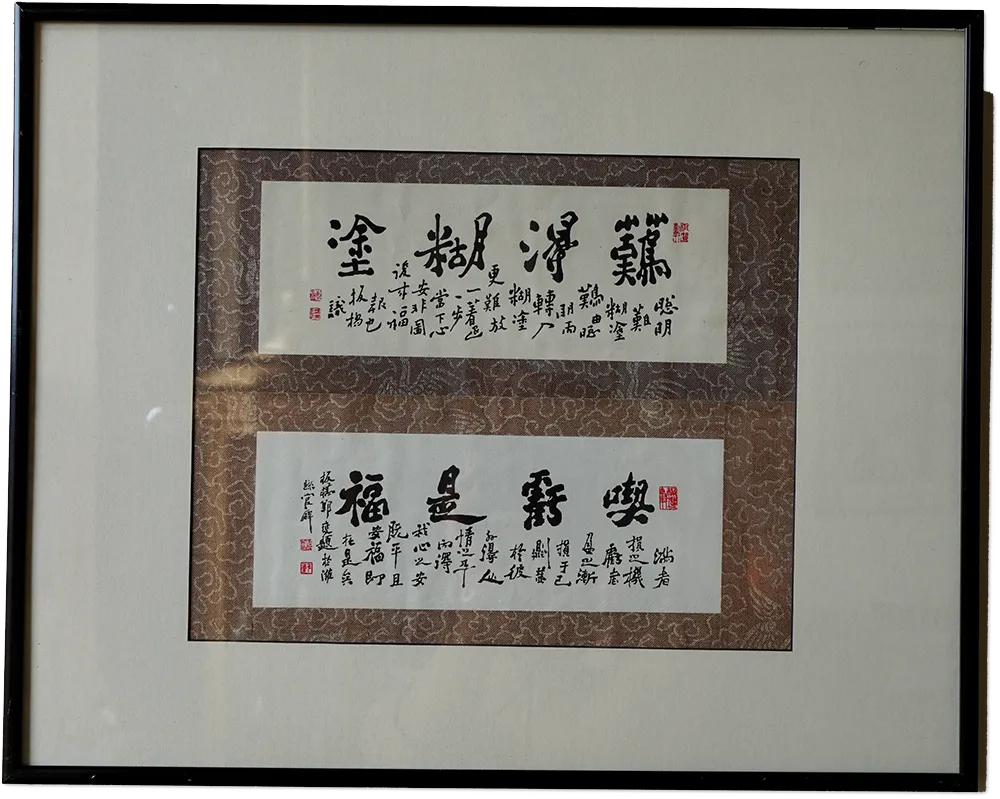 難得糊塗
聰明
難
糊塗
難由聰
明而
轉入
糊塗
更難放
一着退
一步
當下心
安非圖
後來福
報也
板橋
識
喫虧是福
滿者
損之機
虧者
盈之漸
損于己
則益
於彼
外得人
情之平
內得
我心之安
既平且
安福即
在是矣
板橋鄭燮題於濰
縣官廨